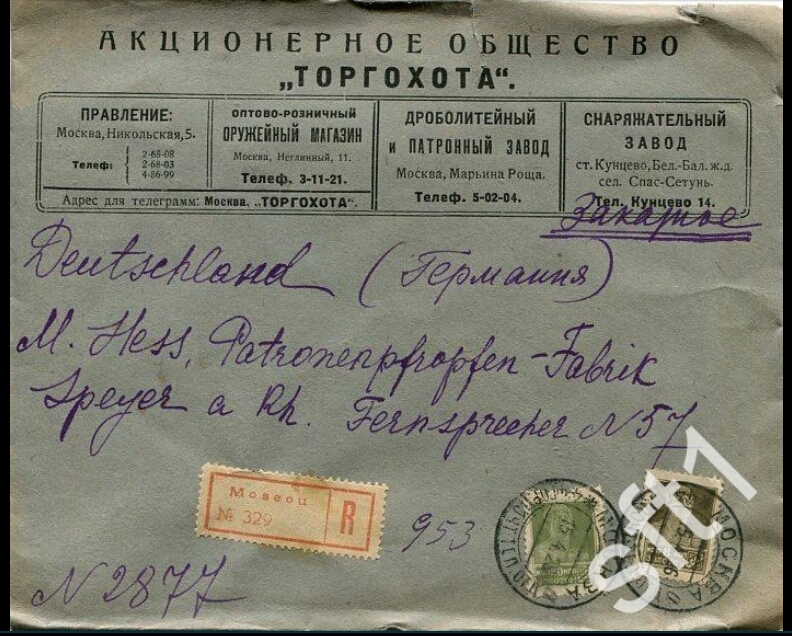 АКЦИОНЕРНОЕ ОБЩЕСТВО
„ТОРГОХОТА“.
ПРАВЛЕНИЕ:
Москва, Никольская, 5.
Телеф: 2-68-08
2-68-03
4-86-99
Адрес для телеграмм: Москва, „ТОРГОХОТА“.
ОПТОВО-РОЗНИЧНЫЙ
ОРУЖЕЙНЫЙ МАГАЗИН
Москва, Неглинный, 11.
Телеф. 3-11-21.
ДРОБОЛИТЕЙНЫЙ
и ПАТРОННЫЙ ЗАВОД
Москва, Марьина Роща.
Телеф. 5-02-04.
СНАРЯЖАТЕЛЬНЫЙ
ЗАВОД
ст. Кунцево, Бел.-Бал. ж.д.
сел. Спас-Сетунь.
Тел. Кунцево 14.
Заказное
Deutschland (Германия)
M. Hess, Patronenpfropfen-Fabrik
Speyer a Rh. Fernsprecher N 57
Moscou
№ 329
R
953
N 2877
МОСКВА
МОСКВА
Sift1